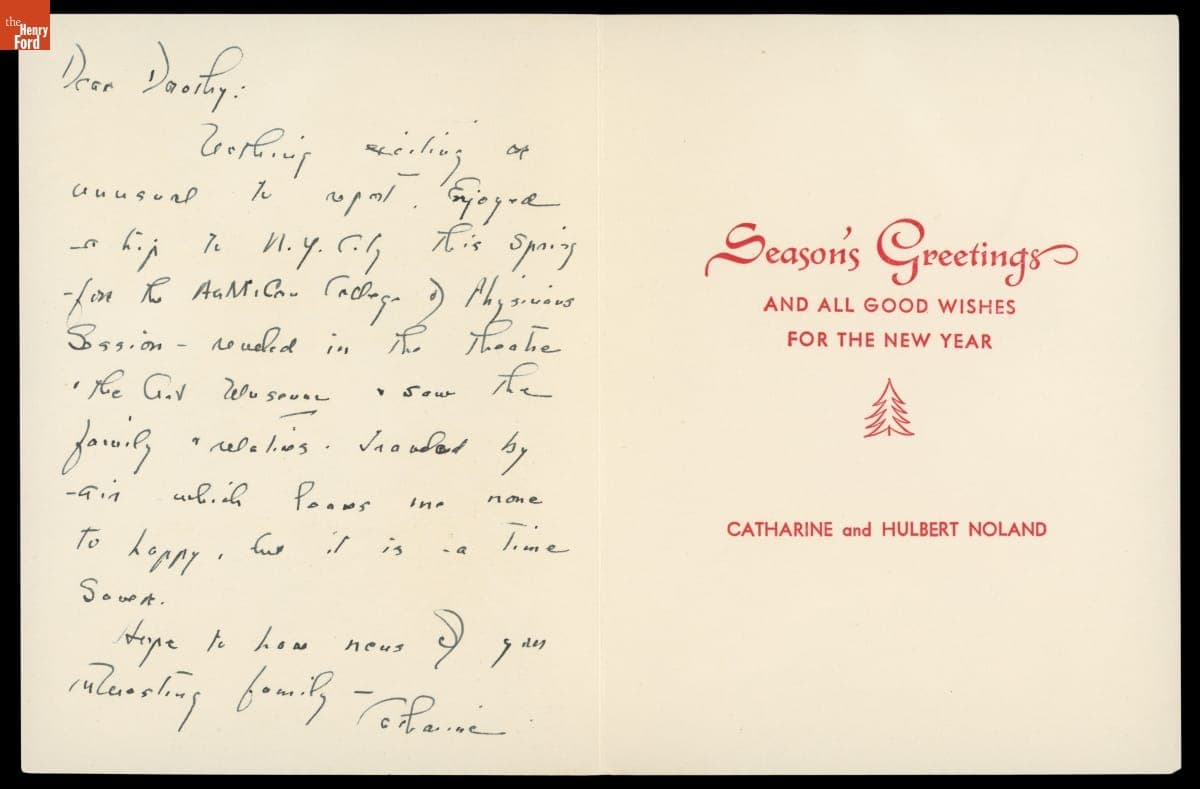 the
Henry
Ford
Dear Dorothy:
Nothing exciting or
unusual to report. Enjoyed
a trip to N.Y. City this Spring
for the American College of Physicians
Session - in the theatre
the Art Museum & saw the
family & relatives. Traveled by
air which leaves me none
to happy, but it is a time
Saver.
Hope to hear news of your
interesting family -
Catharine
Season's Greetings
AND ALL GOOD WISHES
FOR THE NEW YEAR
CATHARINE and HULBERT NOLAND